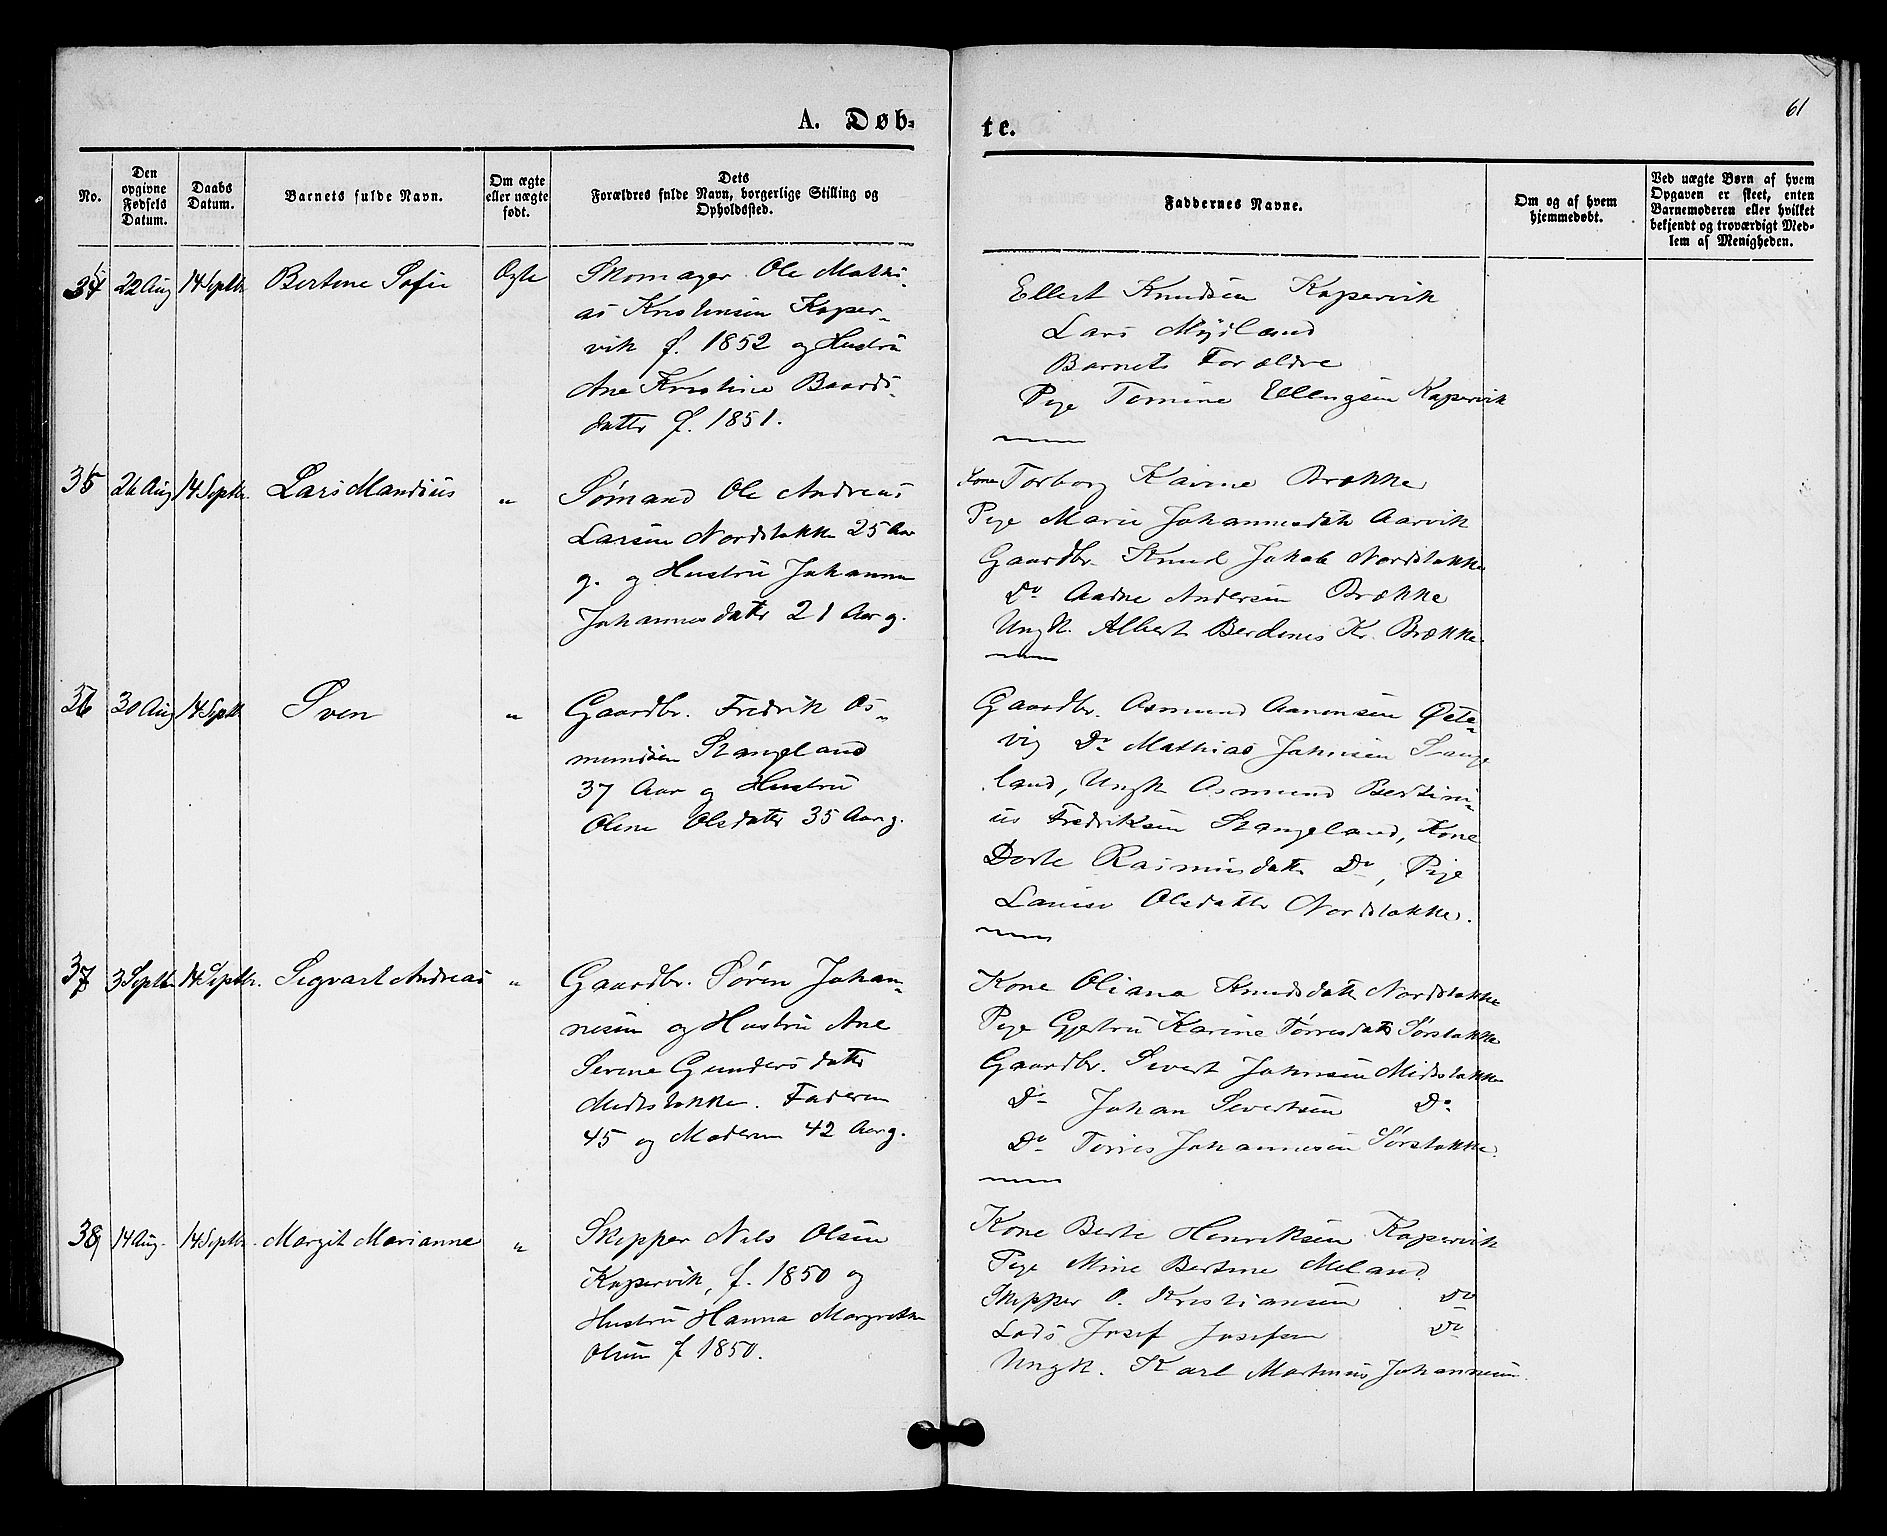 61
A. Døb-
te.
No.
Den opgivne Fødsels Datum.
Daabs Datum.
Barnets fulde Navn.
Om ægte eller uægte født.
Dets Forældres fulde Navn, borgerlige Stilling og Opholdssted.
Faddernes Navne.
Om og af hvem hjemmedøbt.
Ved uægte Børn af hvem Opgaven er skeet, enten Barnemoderen eller hvilket bekjendt og troværdigt Medlem af Menigheden.
22 Aug 14 Septbr Bertine Sofie Ægte
Skomager Ole Mathi-
as Kristensen Koper-
vik f. 1852 og Hustru
Ane Kristine Baards-
datter f. 1851.
Ellert Knudsen Kopervik
Lars Mýland
Barnets Forældre
Pige Tomine Ellingsen Kopervik
35 26 Aug 14 Septbr. Lars Mandius "
Sømand Ole Andreas
Larsen Nordstokke 25 Aar
g. og Hustru Johanna
Johannesdatter 21 Aar g.
Kone Torborg Karine Brække
Pige Marie Johannesdatr Aarvik
Gaardbr. Knud Jakob Nordstokke
Do Aadne Andersen Brække
Ungk. Albert Berdines Kr. Brække
36 30 Aug 14 Septbr Sven "
Gaardbr. Fredrik Os-
mundsen Stangeland
37 Aar og Hustru
Oline Olsdatter 35 Aar g.
Gaardbr. Osmund Aanensen Øste-
vig Do Mathias Johnsen Stange
land, Ungk Osmund Bertini-
us Fredriksen Stangeland, Kone
Dorte Rasmusdatter Do, Pige
Lovise Olsdatter Nordstokke.
37 3 Septbr 14 Septbr. Sigvart Andreas "
Gaardbr. Søren Johan-
nesen og Hustru Ane
Serine Gundersdatter
Midtstokke. Faderen
45 og Moderen 42 Aar g.
Kone Oliana Knudsdatter Nordstokke
Pige Gjertru Karine Tørresdatter Sørstokke
Gaardbr. Sivert Johnsen Midtstokke
Do Johan Sivertsen Do
Do Tørres Johannesen Sørstokke.
38 14 Aug. 14 Septbr. Margit Marianne "
Skipper Nils Olsen
Kopervik, f. 1850 og
Hustru Hanna Margrethe
Olsen f 1850.
Kone Berte Henriksen Kopervik
Pige Mine Bertine Meland
Skipper O. Kristiansen Do
Lods Josef Josefsen Do
Ungk. Karl Martinus Johannesen